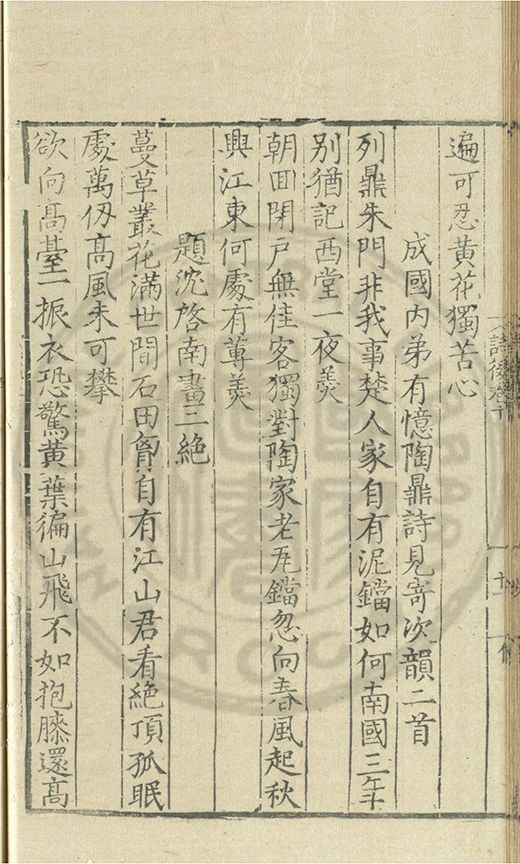 遍可忍黃花獨苦心
成國内弟有憶陶鼎詩見寄次韻二首
列鼎朱門非我事楚人家自有泥鐺如何南國三年
别猶記西堂一夜羮
朝回閉戶無佳客獨對陶家老瓦鐺忽向春風起秋
興江東何處有蓴羮
題沈啓南畫二絶
蔓草叢花滿世間石田身自有江山君看絶頂孤眠
處萬仭高風未可攀
欲向髙臺一振衣恐驚黄葉徧山飛不如抱膝還髙